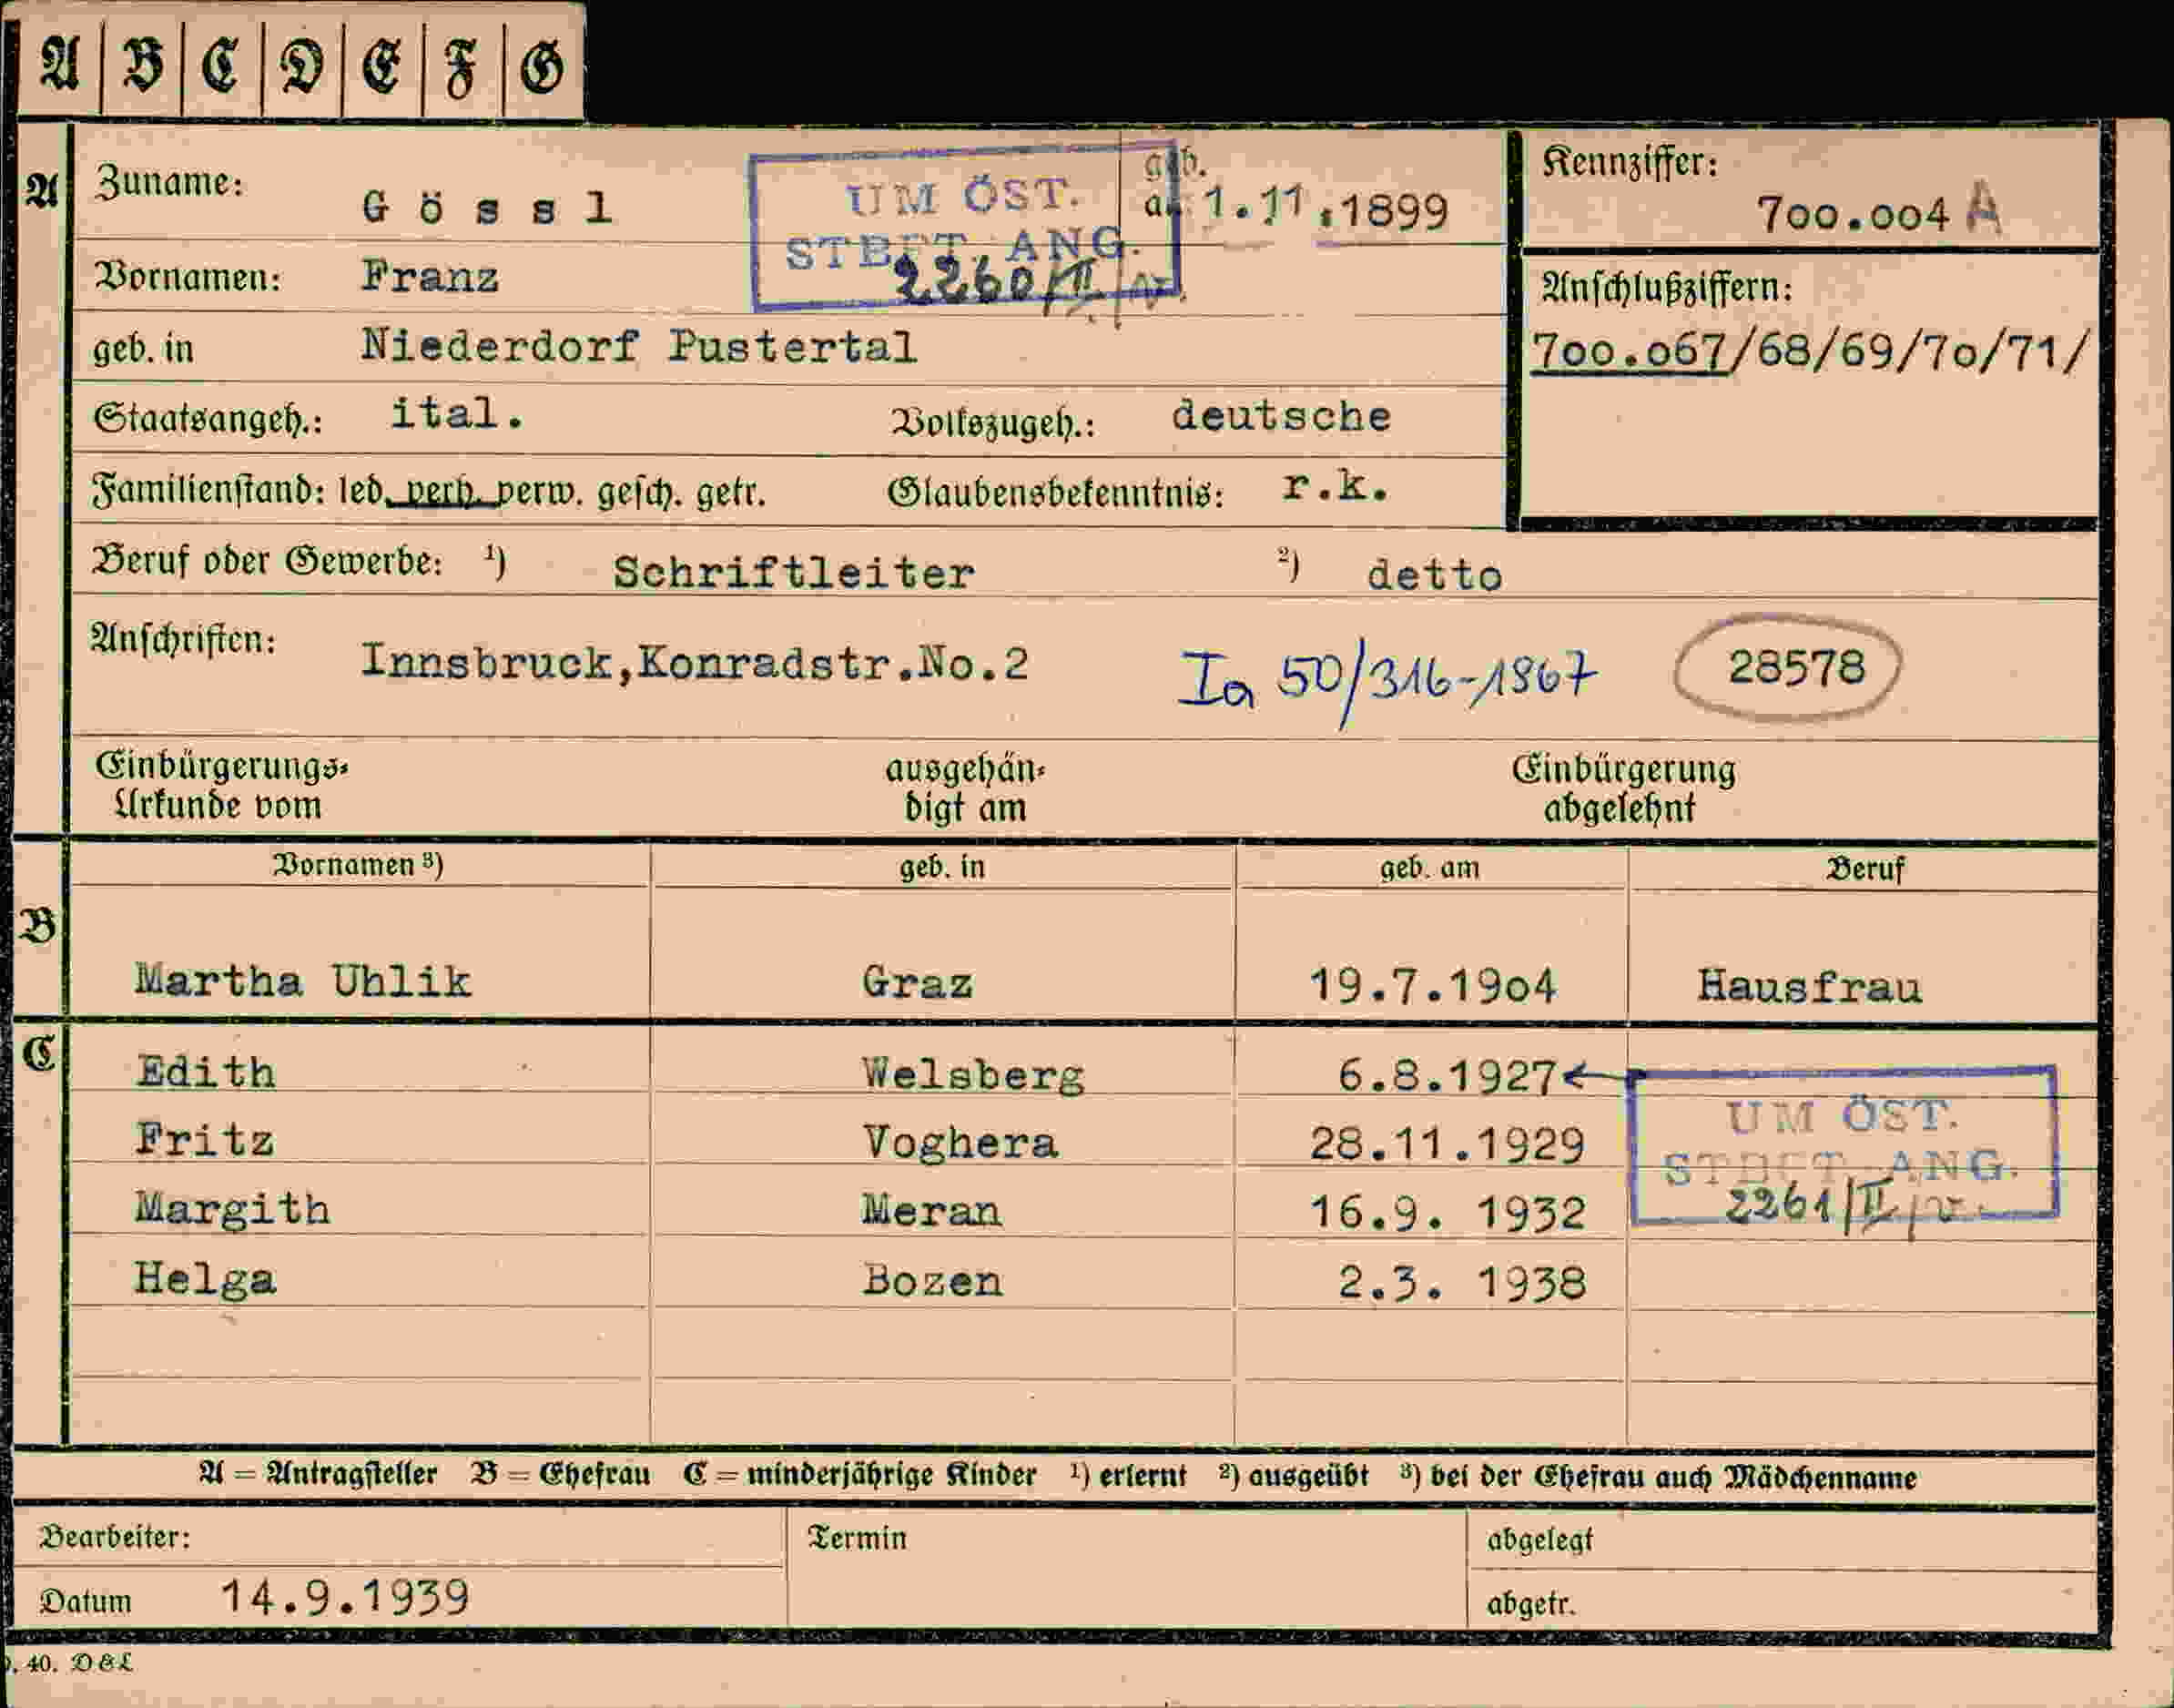 A B C D E F G
A Zuname: Gössl geb. am 1.11.1899
UM ÖST.
STBFT. ANG.
2260/II
Kennziffer:
700.004 A
Vornamen: Franz
Anschlußziffern:
700.067/68/69/70/71/
geb. in Niederdorf Pustertal
Staatsangeh.: ital. Volkszugeh.: deutsche
Familienstand: led. verh. verw. gesch. getr. Glaubensbekenntnis: r.k.
Beruf oder Gewerbe: 1) Schriftleiter 2) detto
Anschriften: Innsbruck,Konradstr.No.2 Ia 50/316-1867 28578
Einbürgerungs- ausgehän- Einbürgerung
Urkunde vom digt am abgelehnt
Vornamen 3) geb. in geb. am Beruf
B
Martha Uhlik Graz 19.7.1904 Hausfrau
C Edith Welsberg 6.8.1927
Fritz Voghera 28.11.1929
Margith Meran 16.9. 1932
Helga Bozen 2.3. 1938
UM ÖST.
STBFT. ANG.
2261/II
A = Antragsteller B = Ehefrau C = minderjährige Kinder 1) erlernt 2) ausgeübt 3) bei der Ehefrau auch Mädchenname
Bearbeiter: Termin abgelegt
Datum 14.9.1939 abgetr.
. 40. D & L